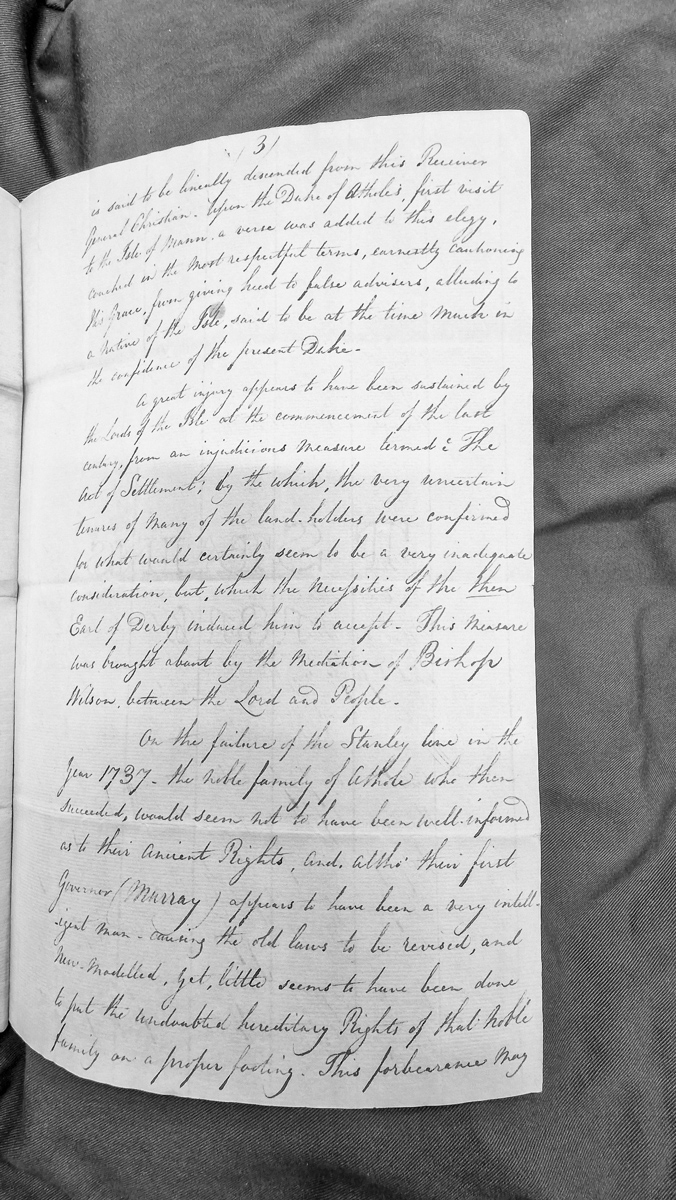 (3)
is said to be lineally descended from this Receiver
General Christian. Upon the Duke of Athole's first visit
to the Isle of Mann. a verse was added to this elegy,
couched in the most respectful terms, earnestly cautioning
His Grace, from giving heed to false advisers, alluding to
a native of the Isle, said to be at the time much in
the confidence of the present Duke.
A great injury appears to have been sustained by
the Lords of the Isle at the commencement of the last
century, from an injudicious measure termed "The
Act of Settlement; by the which, the very uncertain
tenures of many of the land-holders were confirmed
for what would certainly seem to be a very inadequate
consideration, but, which the necessities of the then
Earl of Derby induced him to accept. This measure
was brought about by the Mediation of Bishop
Wilson, between the Lord and People.
On the failure of the Stanley line in the
Year 1737 - the noble family of Athole who then
succeeded, would seem not to have been well-informed
as to their Ancient Rights, and, altho' their first
Governor (Murray) appears to have been a very intell-
igent Man - causing the old laws to be revised, and
New-Modelled, yet, little seems to have been done
to put the undoubted hereditary Rights of that Noble
family on a proper footing. This forbearance May